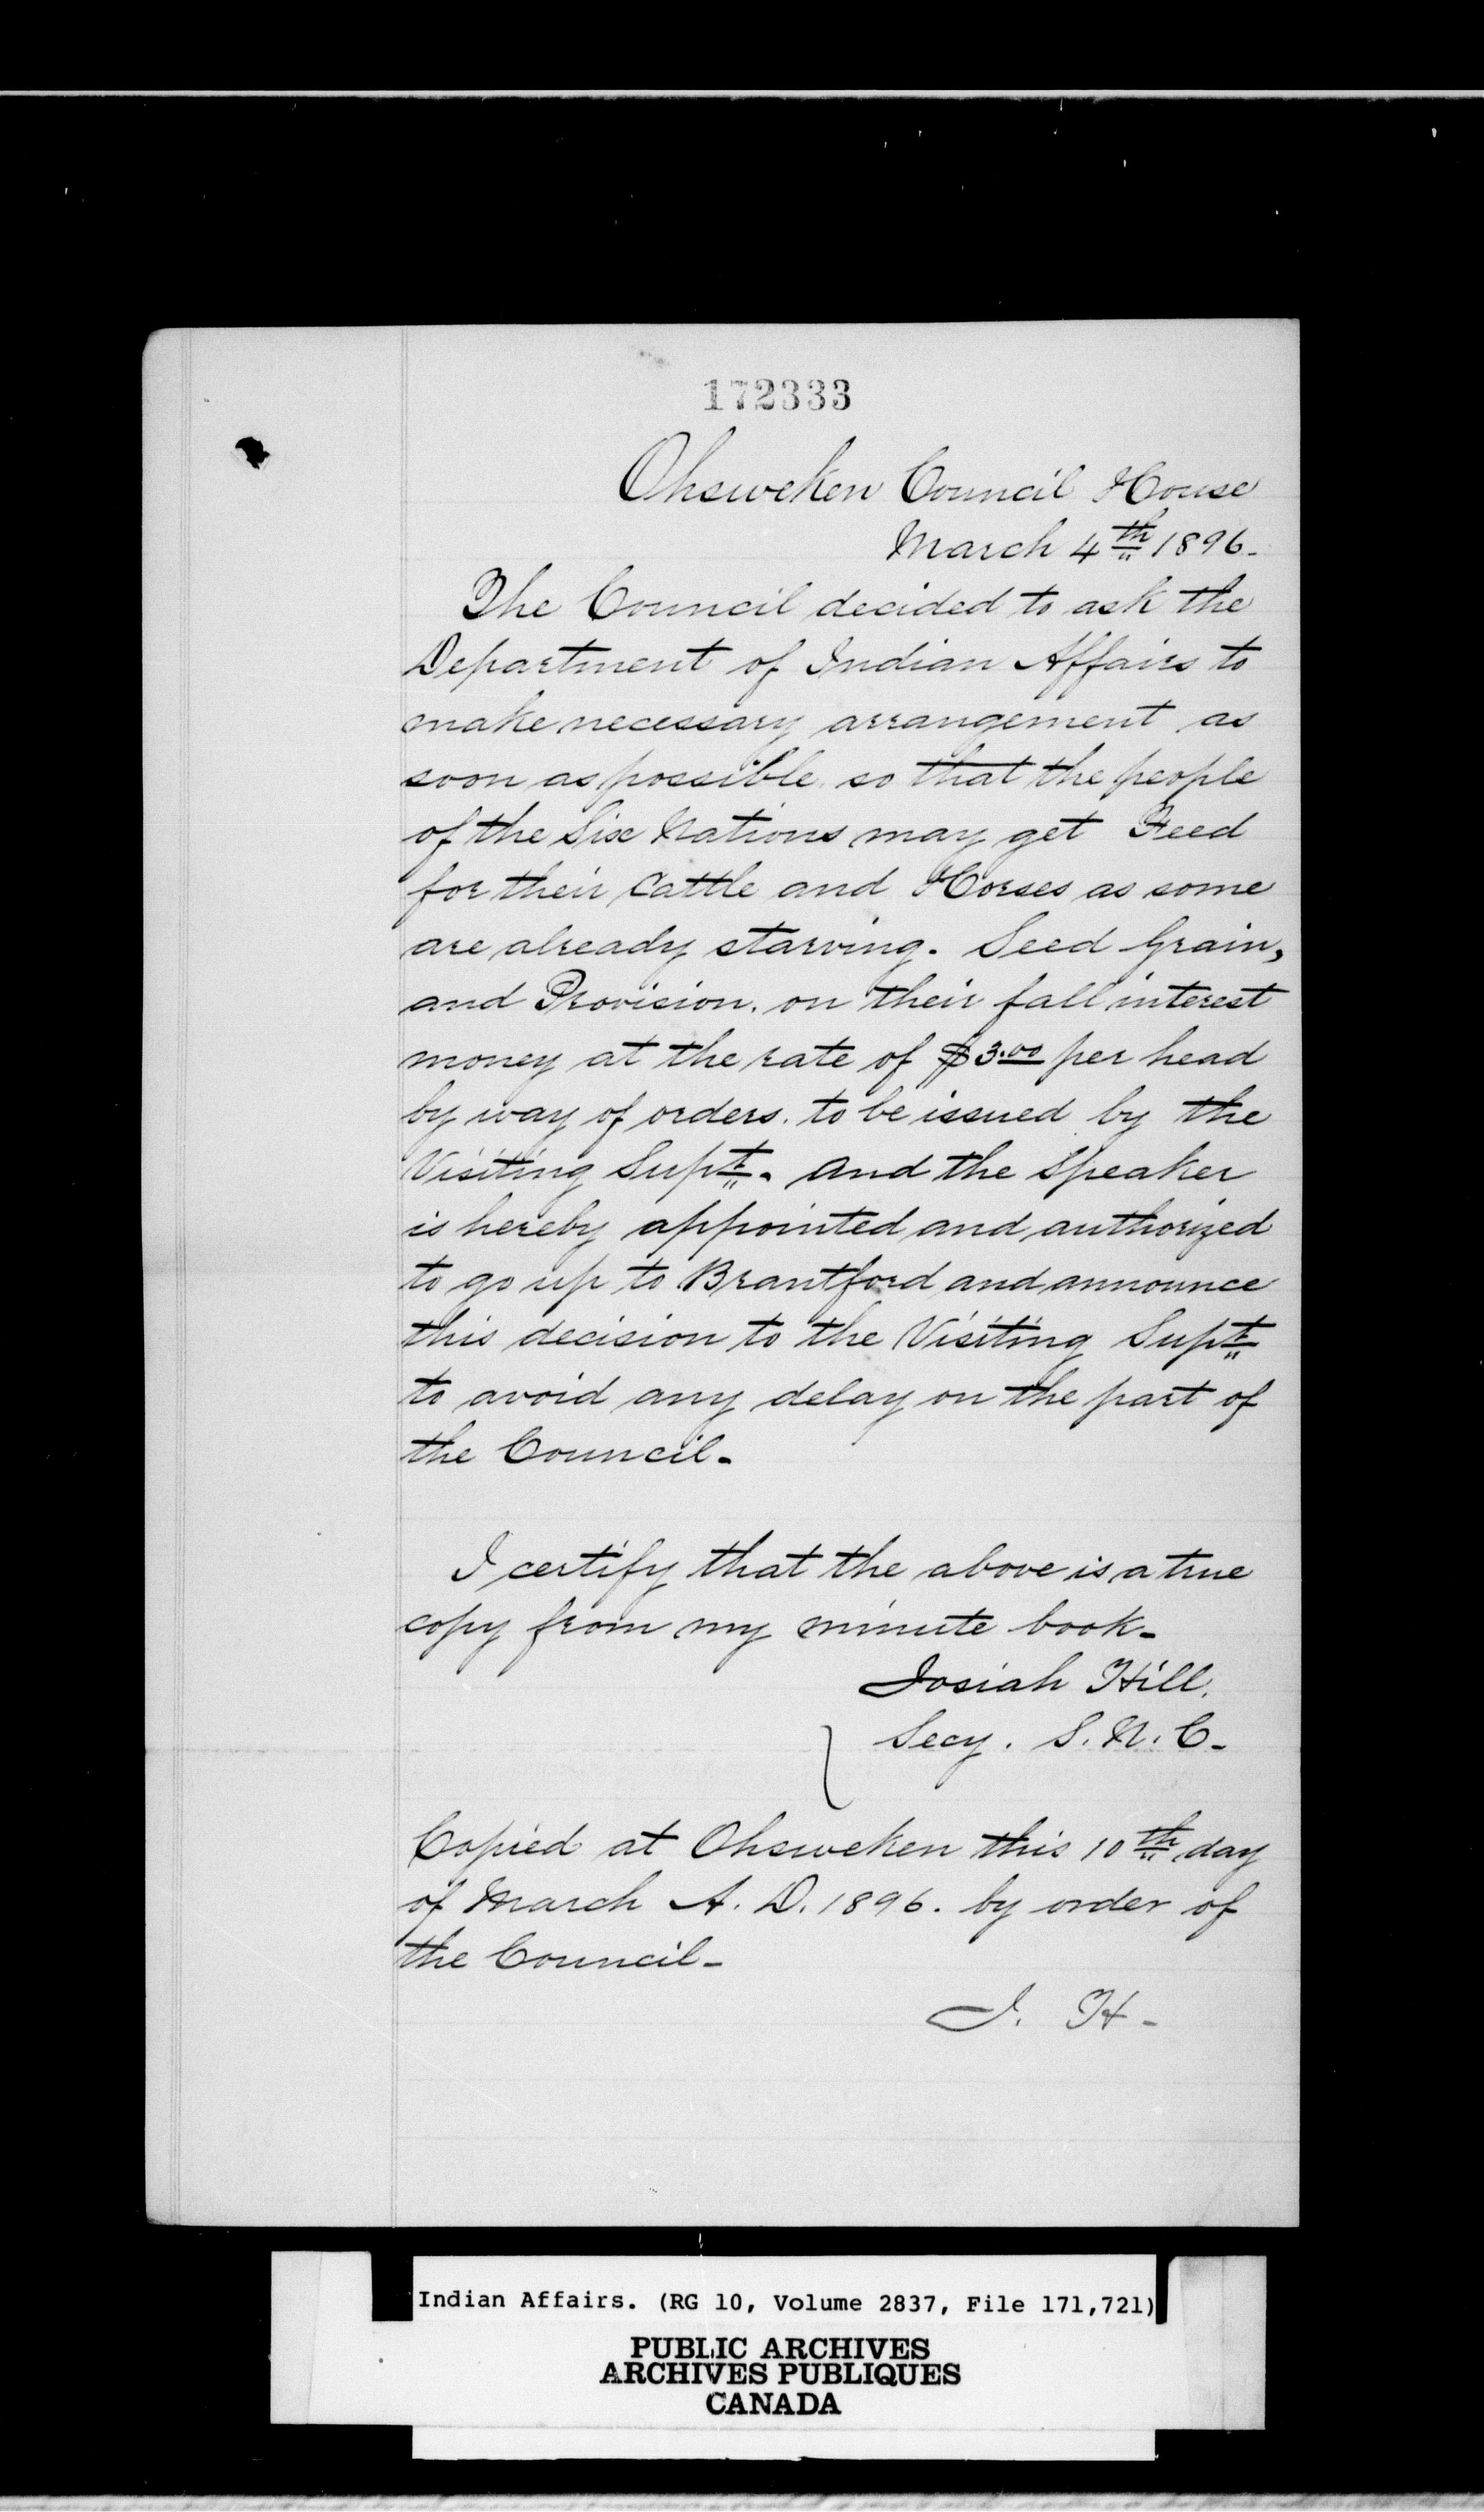 172333
Ohsweken Council House
March 4th 1896.
The Council decided to ask the
Department of Indian Affairs to
make necessary arrangement as
soon as possible so that the people
of the Six Nations may get Feed
for their Cattle and Horses as some
are already starving. Seed Grain,
and Provision. on their fall interest
money at the rate of $3.00 per head
by way of orders. to be issued by the
Visiting Supt. and the Speaker
is hereby appointed and authorized
to go up to Brantford and announce
this decision to the Visiting Supt
to avoid any delay on the part of
the Council.
I certify that the above is a true
copy from my minute book.
Josiah Hill.
Secy. S. N. C.
Copied at Ohsweken this 10th day
of March A. D. 1896. by order of
the Council.
J. H.
Indian Affairs. (RG 10, Volume 2837, File 171,721)
PUBLIC ARCHIVES
ARCHIVES PUBLIQUES
CANADA